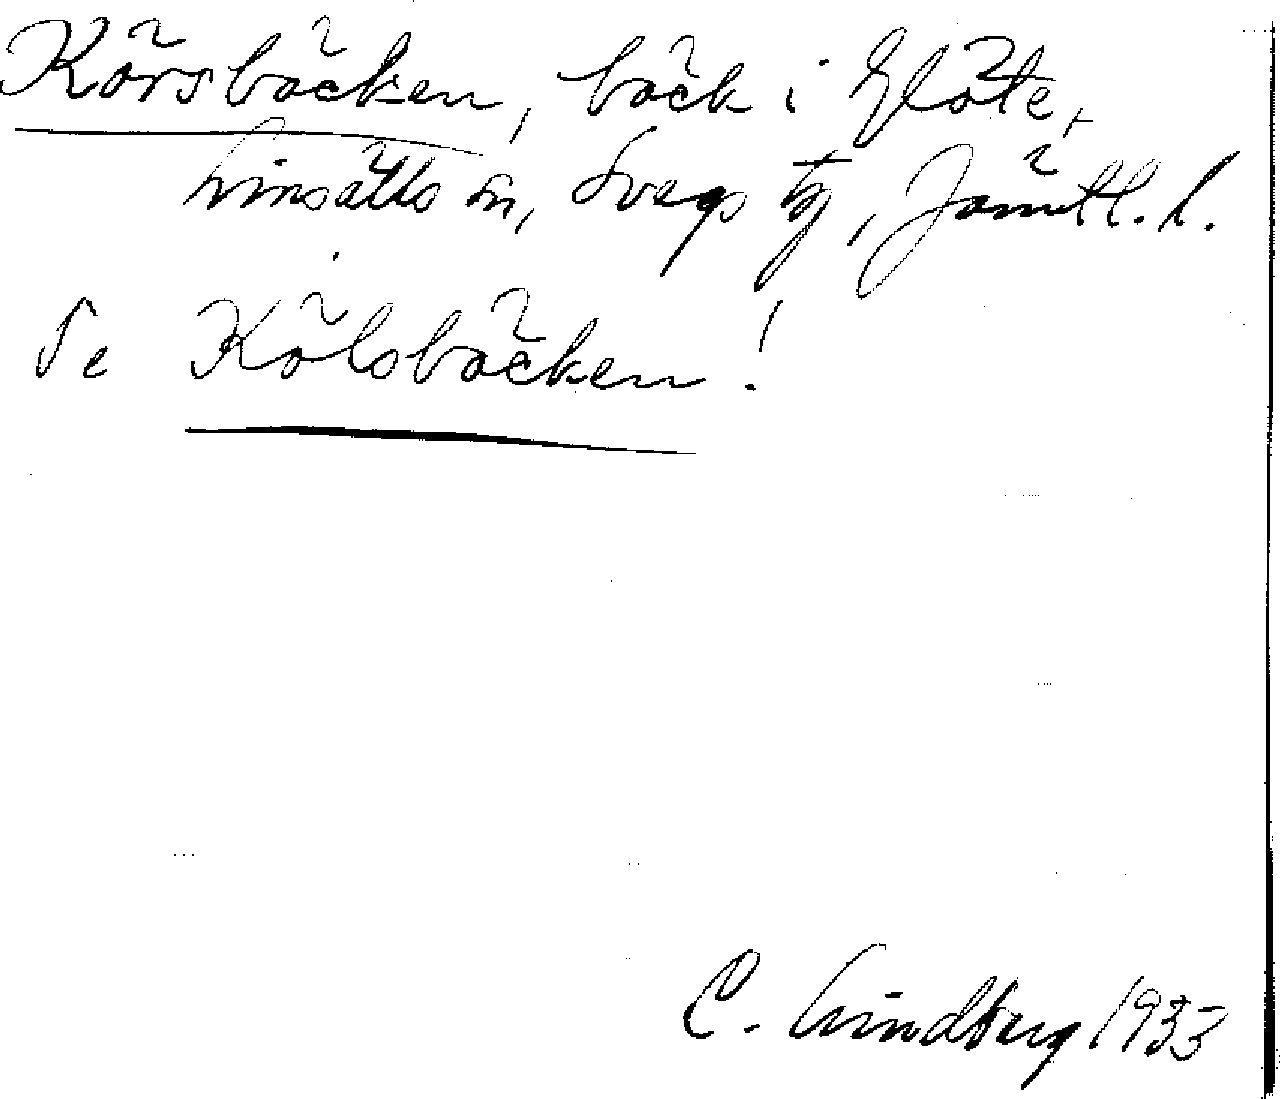 Körsbäcken, bäck i Glöte,
Linsälls sn, Svegs tg, Jämtl. l.
Se Kölsbäcken!
C. Lindberg 1933